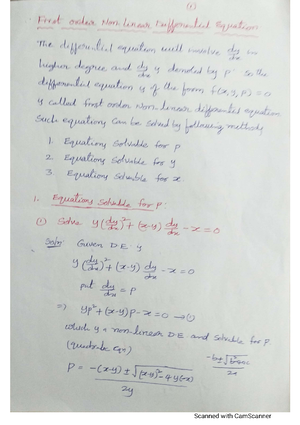 ①
First order Non-linear Differential Equation
The differential equation will involve dy/dx in
higher degree and dy/dx is denoted by P so the
differential equation is of the form f(x, y, P) = 0
is called first order Non-linear differential equation
Such equations can be solved by following methods
1. Equations Solvable for P
2. Equations Solvable for y
3. Equations Solvable for x
1. Equations Solvable for P.
① Solve y(dy/dx)² + (x-y) dy/dx - x = 0
Soln: Given D.E is
y(dy/dx)² + (x-y) dy/dx - x = 0
put dy/dx = P
⇒ yP² + (x-y)P - x = 0 →①
which is a non-linear D.E and solvable for P
(quadratic eqn)
-b ± √(b²-4ac) / 2a
P = -(x-y) ± √((x-y)² - 4y(-x)) / 2y
Scanned with CamScanner